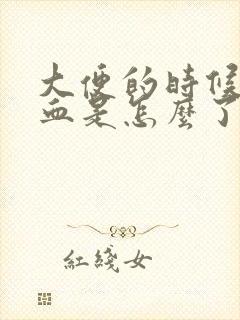 大便的時候
血是怎麼了
紅綫女